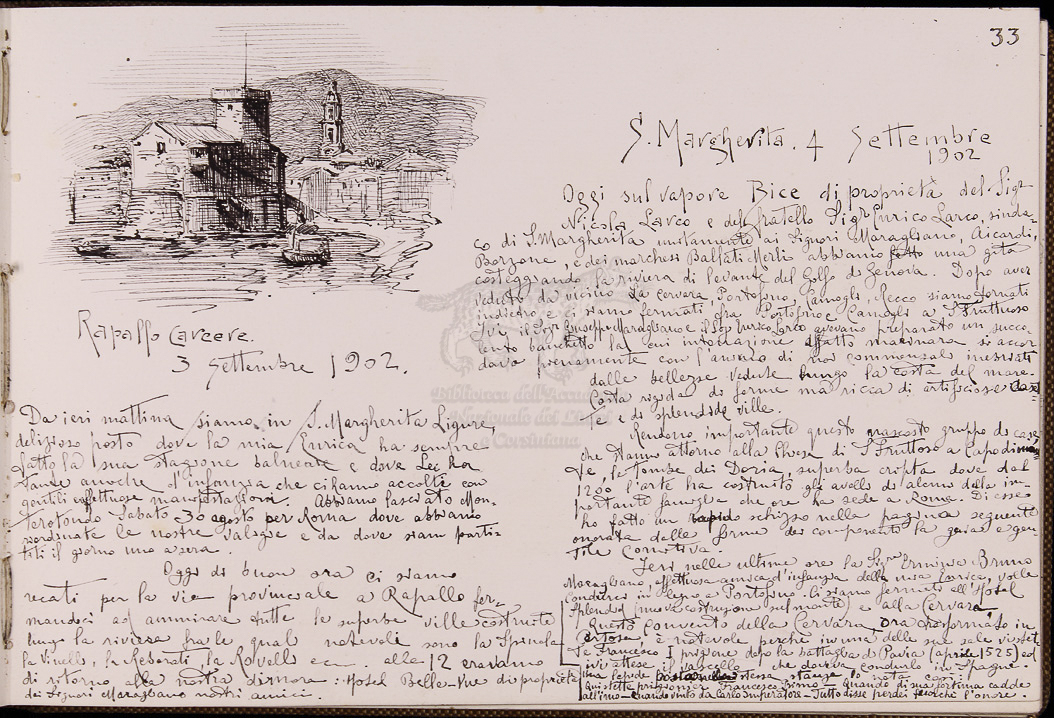 33
Rapallo Carcere.
3 Settembre 1902.
Da ieri mattina siamo in S. Margherita Ligure,
delizioso posto dove la mia Enrica ha sempre
fatto la sua stagione balneare e dove Lei ha
tante amiche d'infanzia che ci hanno accolti con
gentili affettuose manifestazioni. Abbiamo lasciato Mon-
terotondo Sabato 30 agosto per Roma dove abbiamo
riordinate le nostre valigie e da dove siam parti-
ti il giorno uno a sera.
Oggi di buon ora ci siamo
recati per la via provinciale a Rapallo fer-
mandoci ad ammirare tutte le superbe ville costruite
lungo la riviera fra le quali notevoli sono la Spinola
la la la ecc. alle 12 eravamo
di ritorno alla nostra dimora: Hotel Belle-Vue di proprietà
dei Signori Maragliano nostri amici.
S. Margherita. 4 Settembre
1902
Oggi sul vapore Bice di proprietà del Sigr
Nicola Larco e del fratello Sigr Enrico Larco, sinda-
co di S. Margherita unitamente ai Signori Maragliano, Aicardi,
Borzone, e dei marchesi abbiamo fatto una gita
costeggiando la riviera di levante del Golfo di Genova. Dopo aver
veduto da vicino la Cervara, Portofino, Camogli, Recco siamo tornati
indietro e ci siamo fermati fra Portofino e Camogli a S. Fruttuoso
Ivi il Sigr Giuseppe Maragliano e il Sigr Enrico Larco avevano preparato un succu-
lento banchetto la cui intonazione affatto marinara si accor-
dava pienamente con l'animo di noi commensali
dalle bellezze vedute lungo la costa del mare.
Costa rigida di forme ma ricca di artistiche
e di splendide ville.
Rendono importante questo nascosto gruppo di case
che stanno attorno alla Chiesa di S. Fruttuoso a Capodimon-
te, le tombe dei Doria, superba cripta dove dal
1200 l'arte ha costruito gli avelli di alcuni della im-
portante famiglia che ora ha sede a Roma. Di esse
ho fatto un rapido schizzo nella pagina seguente
onorata delle firme dei componenti la gaia e gen-
tile Comitiva.
Ieri nelle ultime ore la Sigra Erminia Bruno
Maragliano, affettuosa amica d'infanzia della mia Enrica, volle
condurci in a Portofino. Ci siamo fermati all'Hotel
Splendid (nuova costruzione sul monte) e alla Cervara
Questo convento della Cervara, ora trasformato in
Certosa, è notevole perché in una delle sue sale visse
Francesco I prigione dopo la battaglia di Pavia (aprile 1525) ed
ivi attese il vascello che doveva condurlo in Spagna.
Una lapide nella stessa stanza lo nota così:
Qui stette prigionier Francesco Primo - Quando di sua fortuna cadde
all'imo - Quando vinto da Carlo Imperatore - Tutto disse perdei fuorché l'onore.
Biblioteca dell'Accademia
Nazionale dei Lincei
e Corsiniana